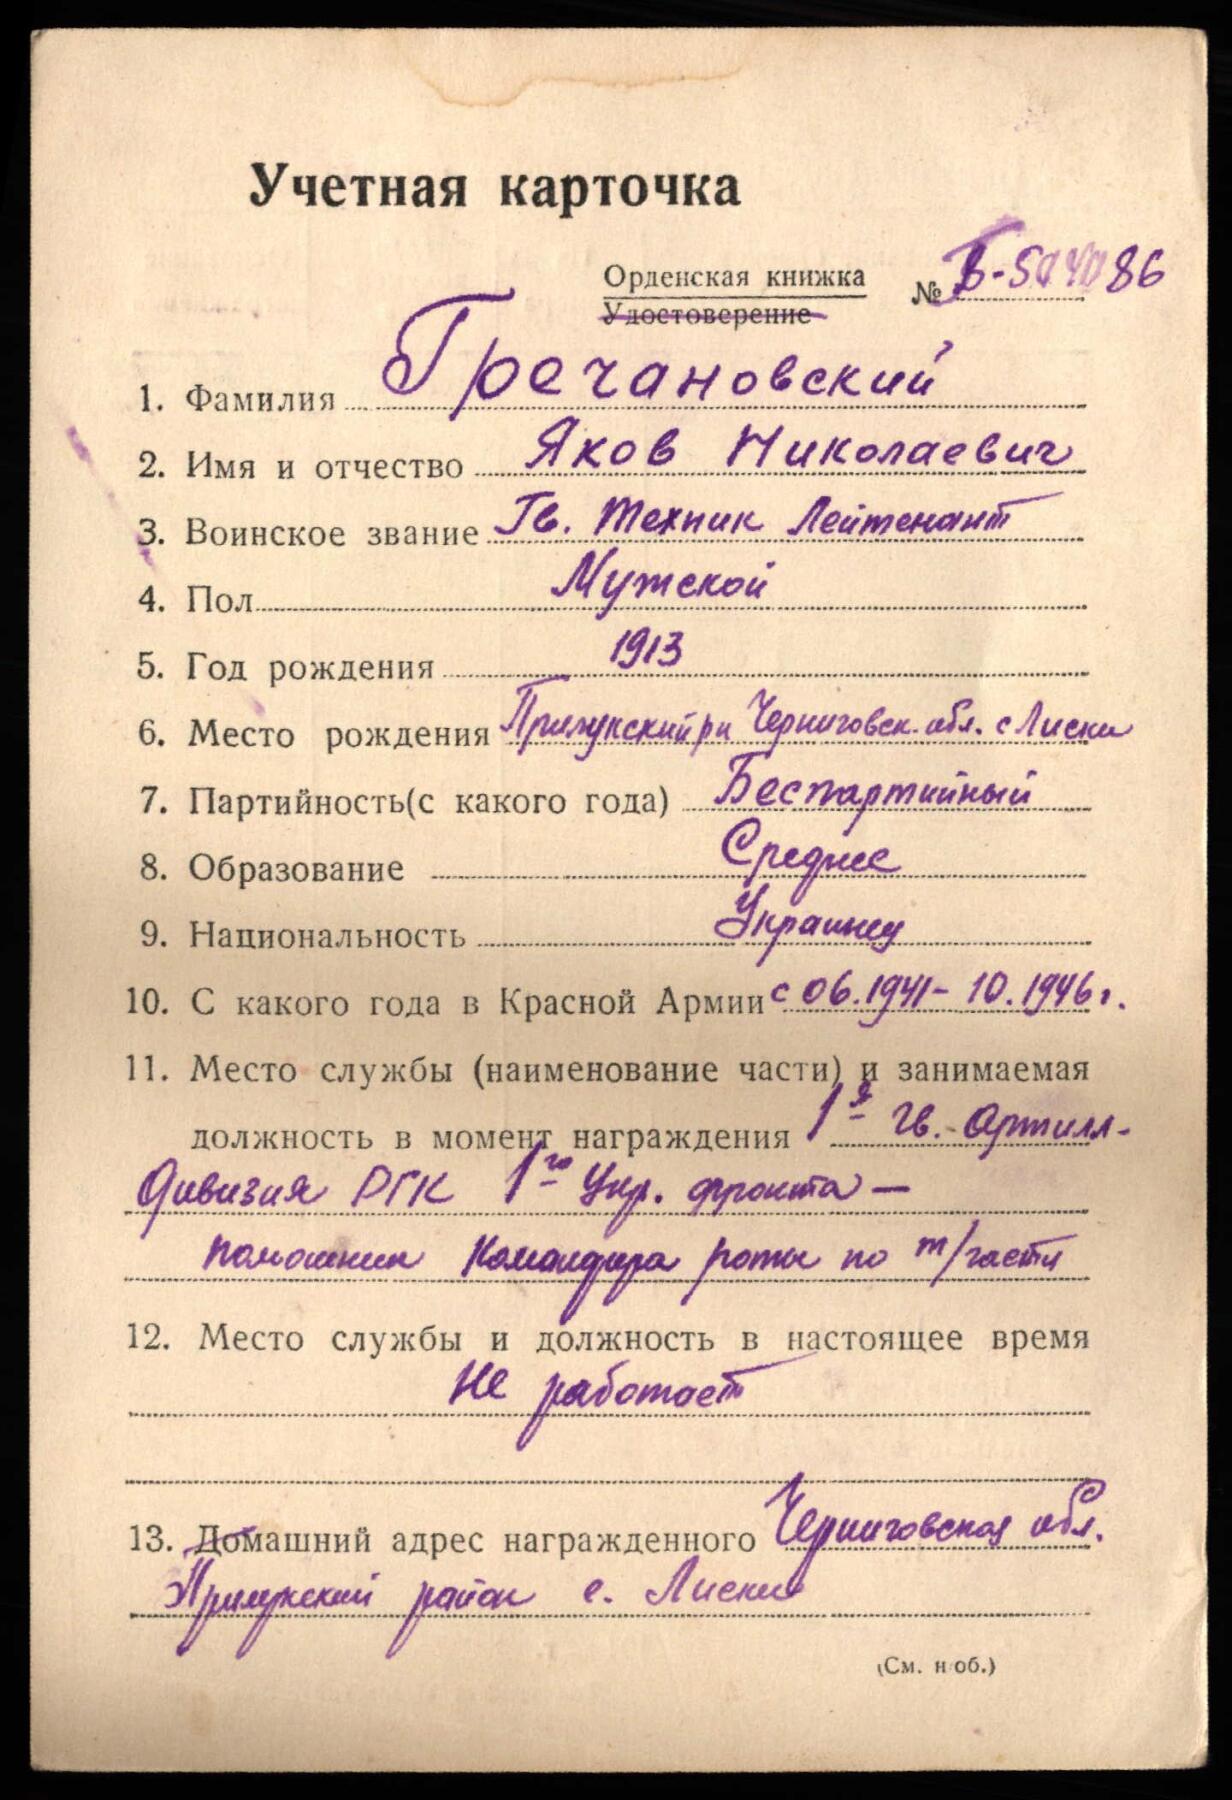 Учетная карточка
Орденская книжка № Б-504086
Удостоверение
1. Фамилия Гречановский
2. Имя и отчество Яков Николаевич
3. Воинское звание Гв. Техник Лейтенант
4. Пол Мужской
5. Год рождения 1913
6. Место рождения Прилукский рн Черниговск. обл. с Лиски
7. Партийность (с какого года) Беспартийный
8. Образование Среднее
9. Национальность Украинец
10. С какого года в Красной Армии с 06.1941 - 10.1946 г.
11. Место службы (наименование части) и занимаемая
должность в момент награждения 1я гв. Артилл-
дивизия РГК 1го Укр. фронта —
помошник Командира роты по т/части
12. Место службы и должность в настоящее время
Не работает
13. Домашний адрес награжденного Черниговская обл.
Прилукский район с. Лиски
(См. н об.)